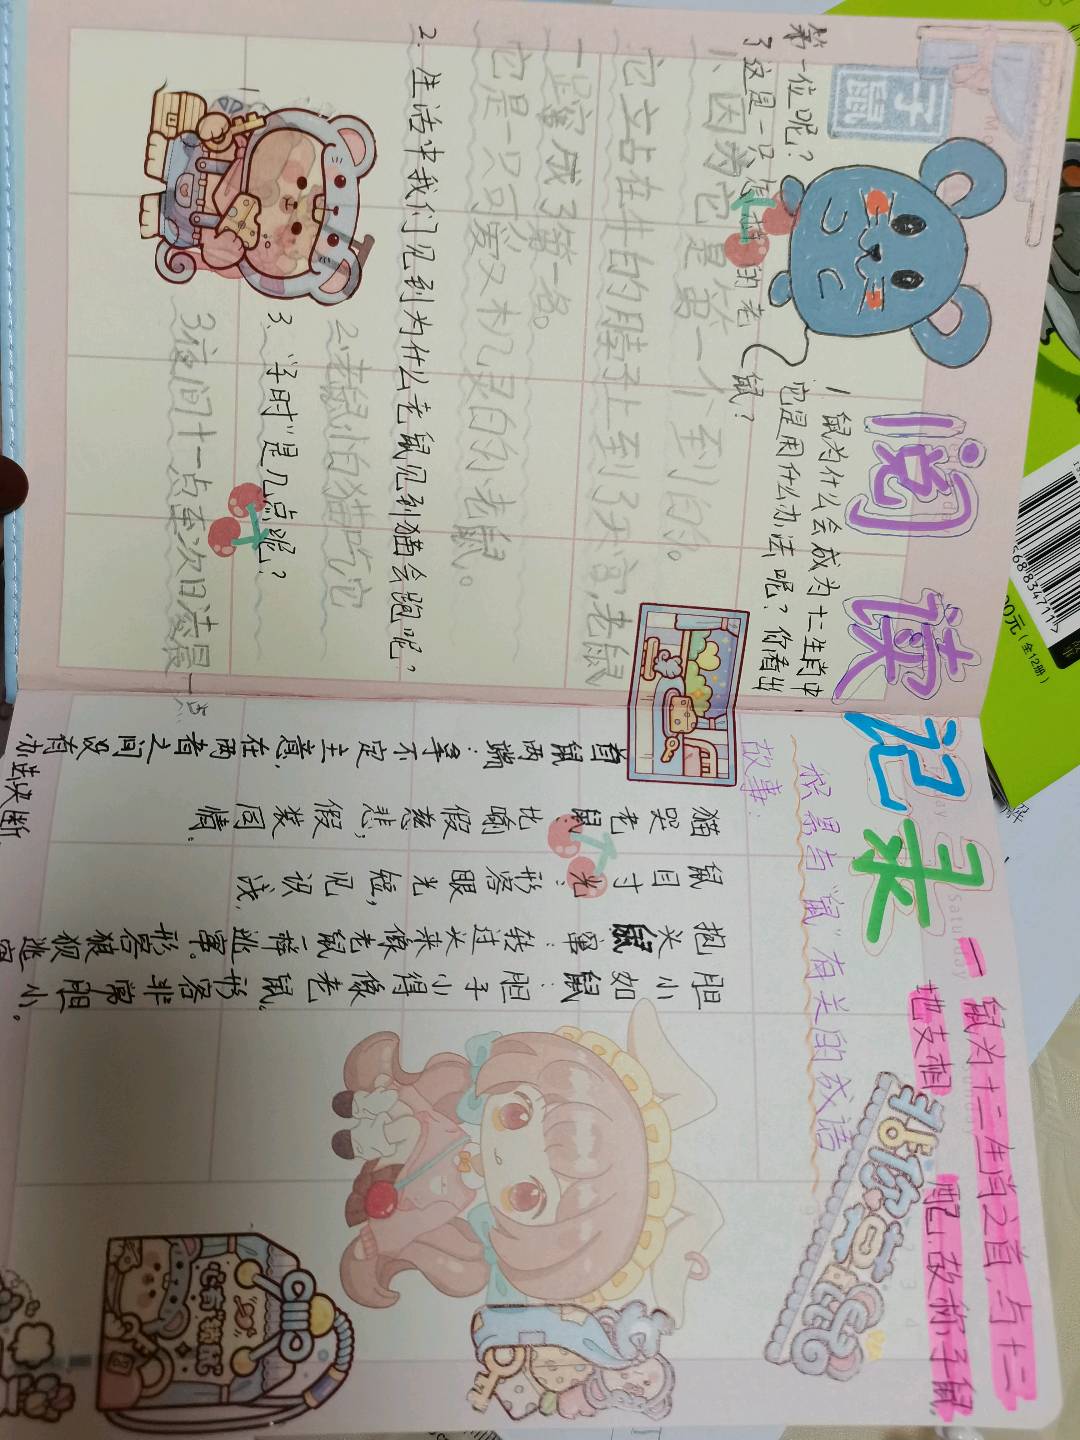 阅读记录
子鼠
1 鼠为什么会成为十二生肖中
第一位呢?它是用什么办法呢?你看出
了这是一只怎样的老鼠?
1、因为它是第一个到的。
它立占在牛的脖子上到了天宫,老鼠
一蹿成了第一名。
它是一只可爱又机灵的小老鼠。
2.生活中我们见到为什么老鼠见到猫会跑呢?
2.老鼠怕猫吃它
3、"子时"是几点呢?
3夜间十一点至次日凌晨一点
一鼠为十二生肖之首,与十二
地支相配,故称子鼠.
积累与"鼠"有关的成语
故事:
胆小如鼠:胆子小得像老鼠。形容非常胆小。
抱头鼠窜:转过头来像老鼠一样逃窜。形容狼狈逃窜
鼠目寸光:形容眼光短,见识浅,
猫哭老鼠:比喻假慈悲,假装同情.
首鼠两端:拿不定主意,在两者之间没有办
法决断.